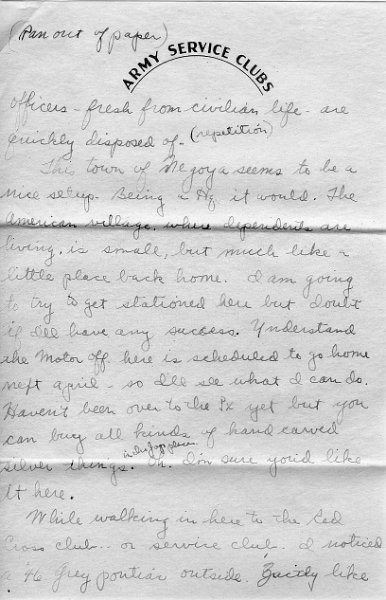 (Ran out of paper)
ARMY SERVICE CLUBS
officers - fresh from civilian life - are
quickly disposed of. (repetition)
This town of Negoya seems to be a
nice setup. Being a Hq it would. The
American village, where dependents are
living, is small, but much like a
little place back home. I am going
to try to get stationed here but doubt
if I'll have any success. Understand
the Motor off. here is scheduled to go home
next april - so I'll see what I can do.
Haven't been over to the Px yet but you
can buy all kinds of hand carved
silver things. Oh. I'm sure you'd like
It here.
While walking in here to the Red
Cross club.. or service club. I noticed
a 46 Grey pontiac outside. Exactly like